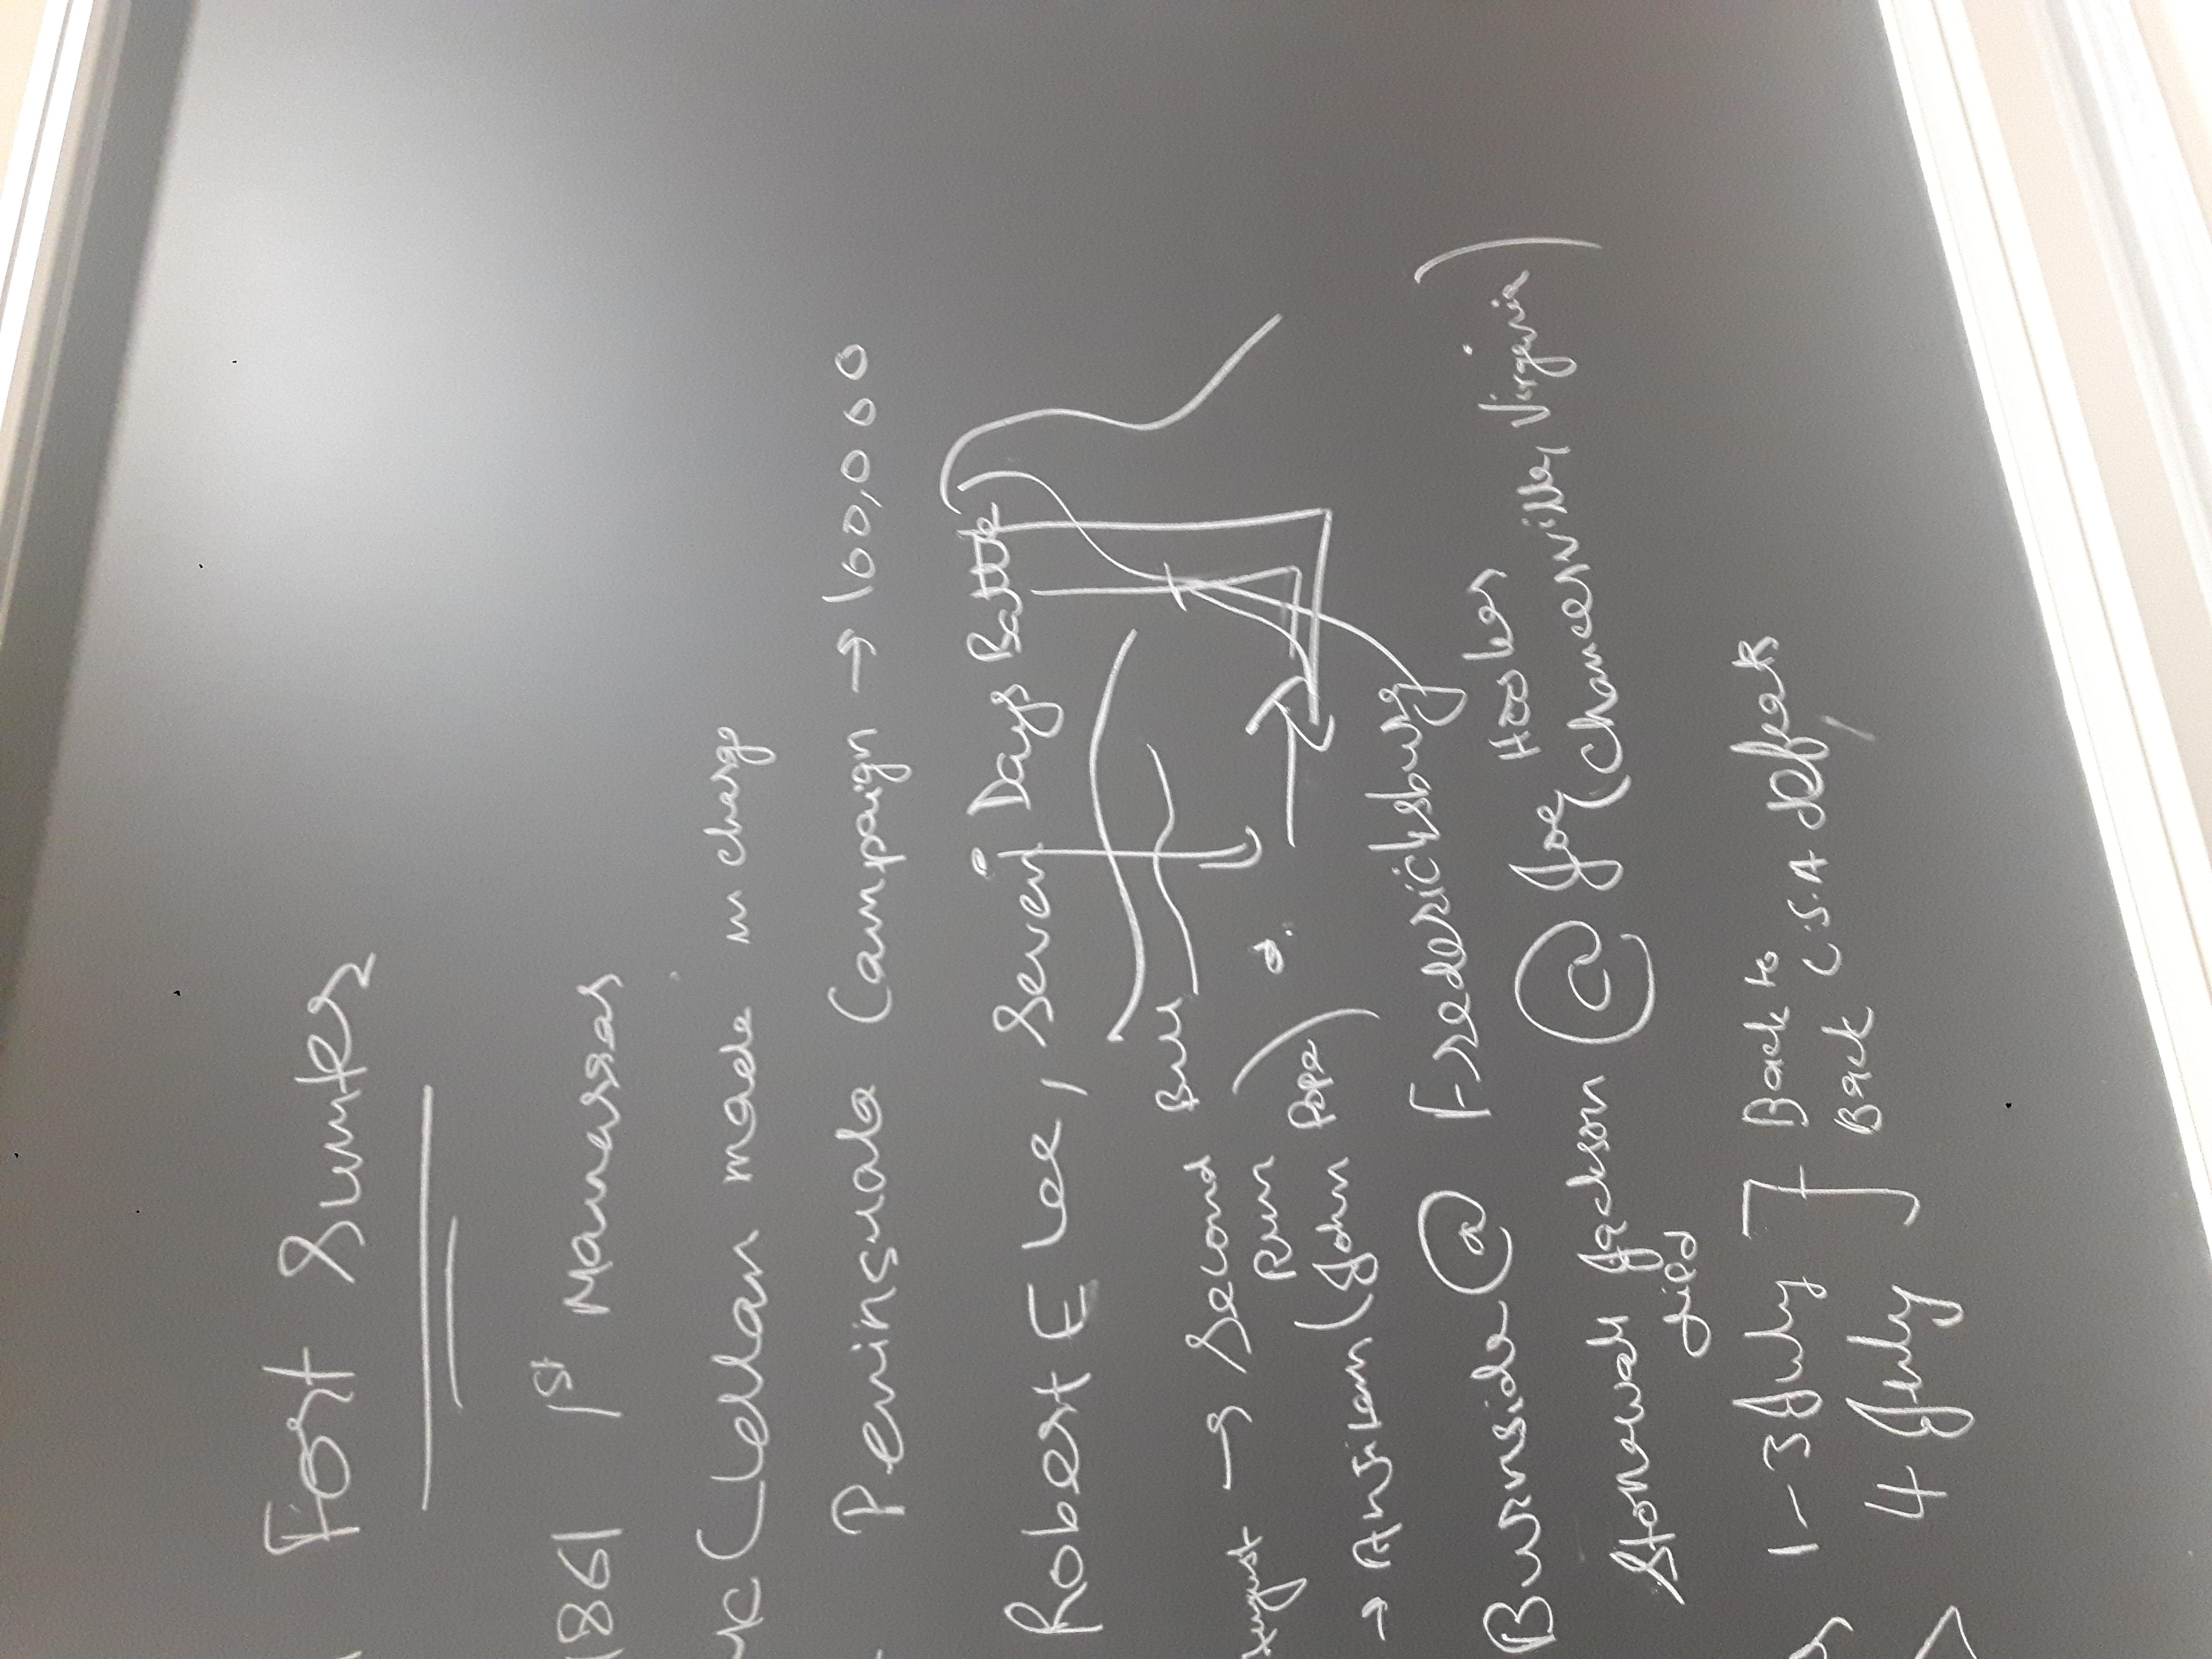 Fort Sumter
1861 1st Manassas
McClellan made in charge
Peninsula Campaign → 100,000
Robert E Lee, Seven Days Battle
August → Second Bull
Run
→ Antitam (John Pope)
Burnside @ Fredericksburg
Hooker
Stonewall Jackson @ Joe (Chancerville, Virginia)
died
1-3 July ] Back to
4 July Back C.S.A defeats